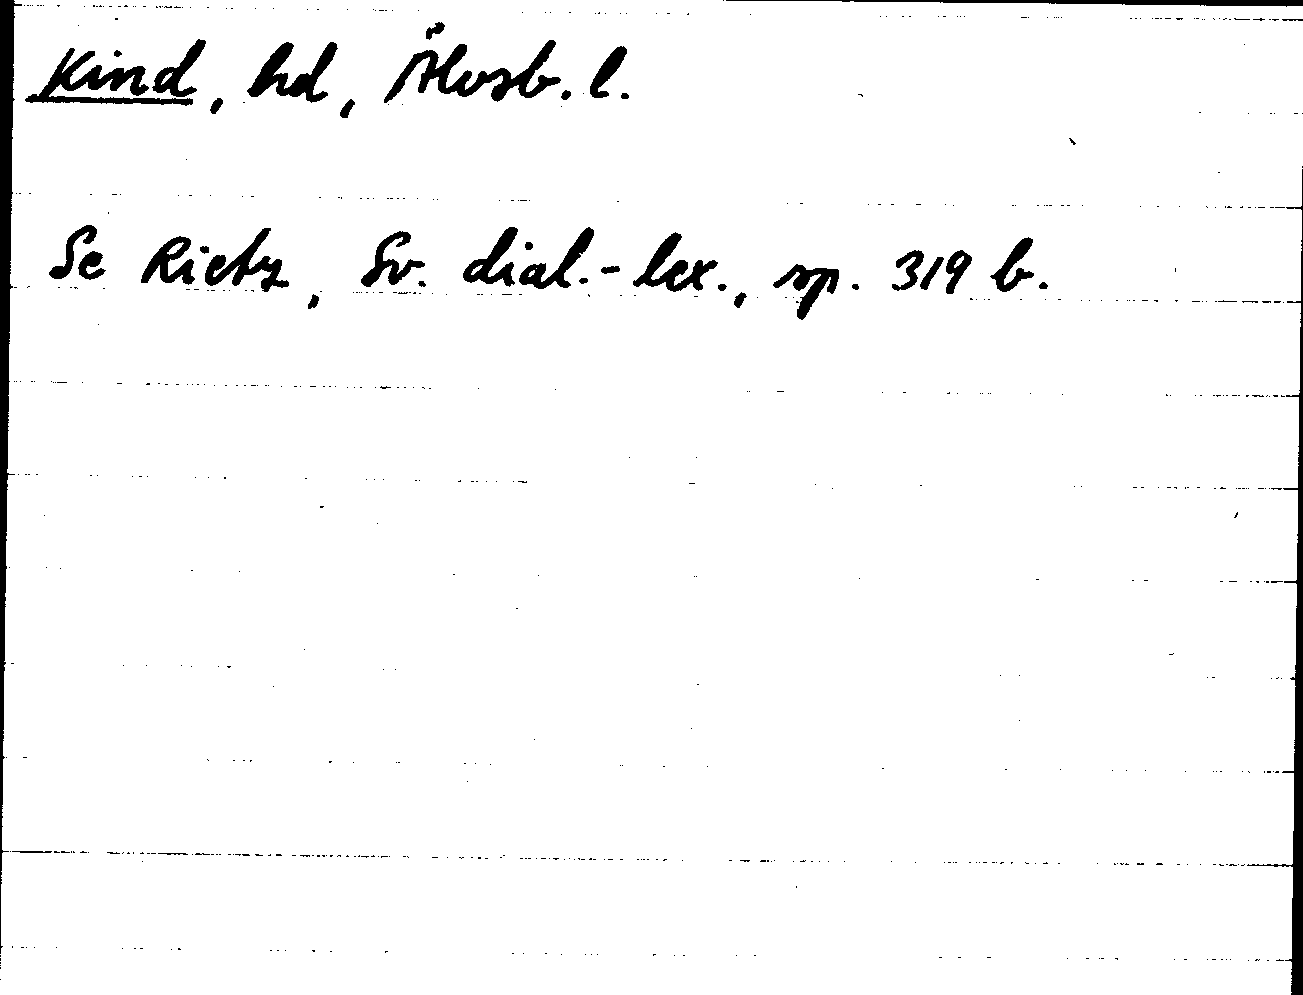 Kind, hd, Älvsb. l.
Se Rietz, Sv. dial.-lex., sp. 319 b.